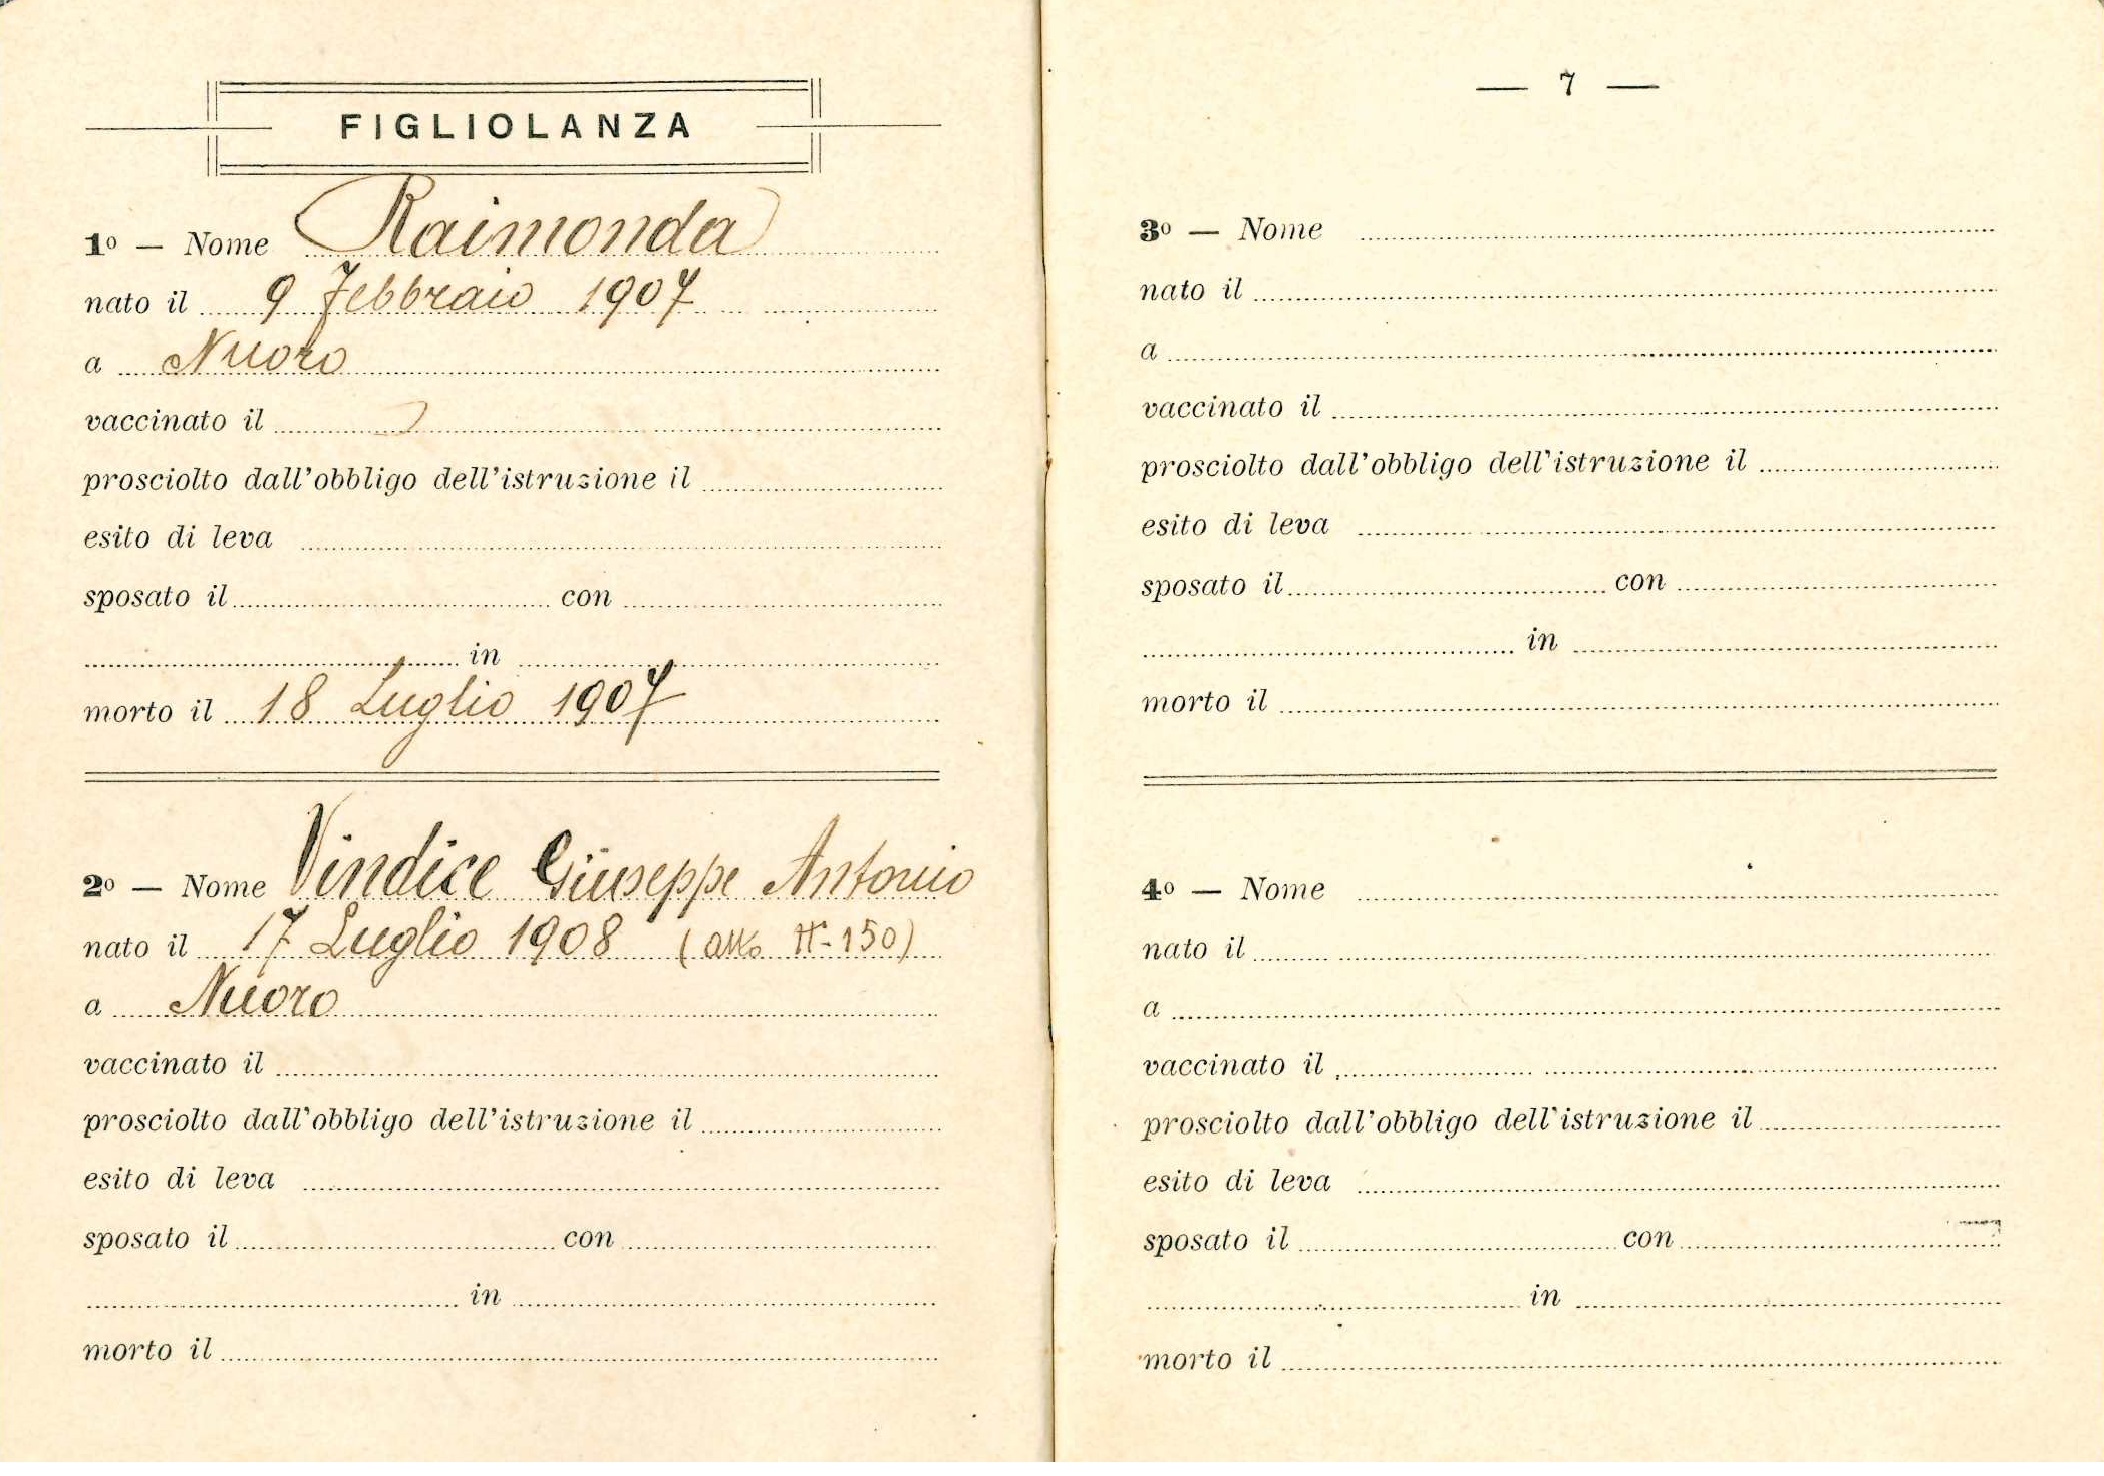 FIGLIOLANZA
1º — Nome Raimonda
nato il 9 Febbraio 1907
a Nuoro
vaccinato il
prosciolto dall'obbligo dell'istruzione il
esito di leva
sposato il con
in
morto il 18 Luglio 1907
2º — Nome Vindice Giuseppe Antonio
nato il 17 Luglio 1908 (atto N- 150)
a Nuoro
vaccinato il
prosciolto dall'obbligo dell'istruzione il
esito di leva
sposato il con
in
morto il
— 7 —
3º — Nome
nato il
a
vaccinato il
prosciolto dall'obbligo dell'istruzione il
esito di leva
sposato il con
in
morto il
4º — Nome
nato il
a
vaccinato il
prosciolto dall'obbligo dell'istruzione il
esito di leva
sposato il con
in
morto il